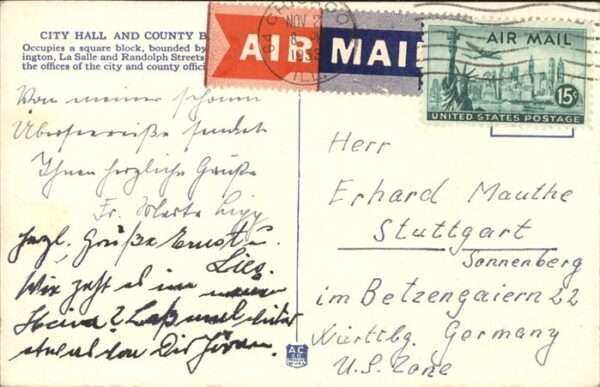 CITY HALL AND COUNTY B
Occupies a square block, bounded by
ington, La Salle and Randolph Streets
the offices of the city and county offici
AIR MAIL
CHICAGO
NOV 2
ILL.
AIR MAIL
15¢
UNITED STATES POSTAGE
Von meiner schönen
Überseereise sendet
Ihnen herzliche Grüße
Fr. Marta
herzl. Grüße Ernst u.
Wie geht es im neuen
Heim? Laß mal wieder
etwas von Dir hören.
Herr
Erhard Mauthe
Stuttgart
Sonnenberg
im Betzengaiern 22
Württbg. Germany
U.S. Zone
A.C.